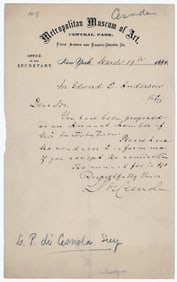 Cesnola
Metropolitan Museum of Art,
CENTRAL PARK,
FIFTH AVENUE AND EIGHTY-SECOND ST.
OFFICE
OF THE
SECRETARY.
New York, March 19th 1884.
Mr Edward C. Anderson
City
Dear Sir
You have been proposed
as an Annual Member of
this Institution. Please have
the kindness to inform me
if you accept the nomination
The annual fee is $10
Respectfully Yours
L P di Cesnola
L. P. di Cesnola, Secy